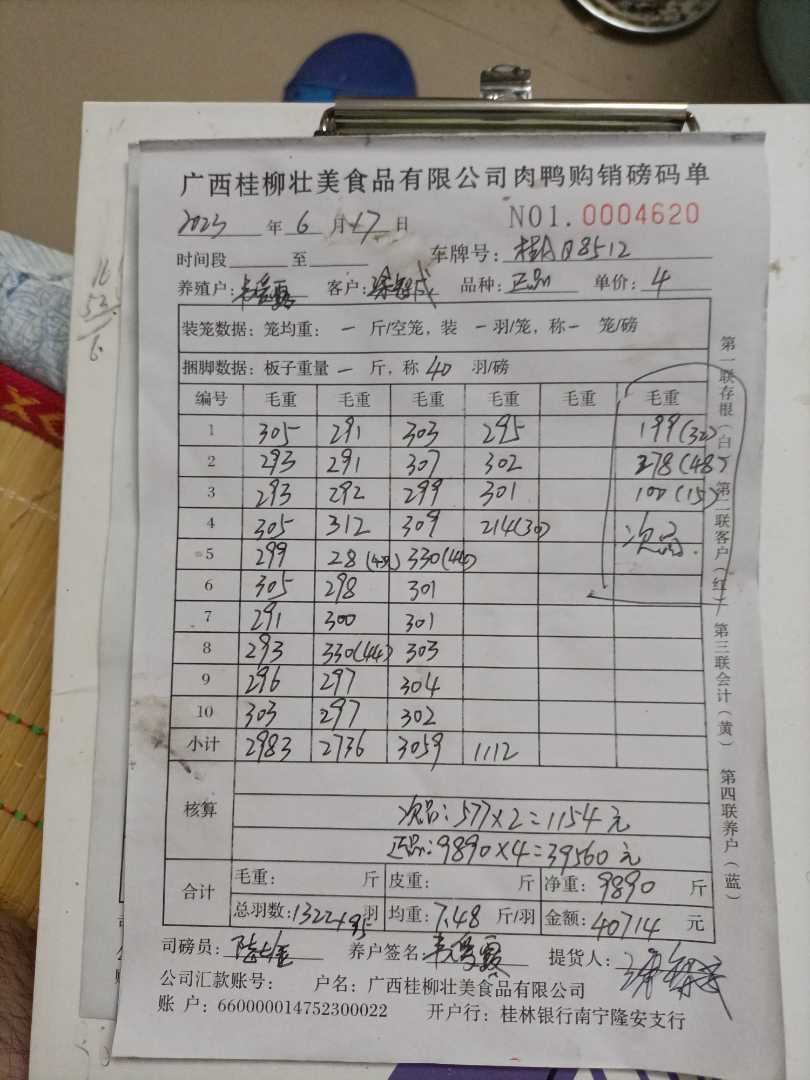 广西桂柳壮美食品有限公司肉鸭购销磅码单
2023 年 6 月 17 日 NO1.0004620
时间段 至 车牌号: 桂AQ8512
养殖户: 客户: 品种: 正品 单价: 4
装笼数据: 笼均重: 一 斤/空笼, 装 一 羽/笼, 称 一 笼/磅
捆脚数据: 板子重量 一 斤, 称 40 羽/磅
编号 毛重 毛重 毛重 毛重 毛重 毛重
1 305 291 303 295 199(32)
2 293 291 307 302 278(48)
3 293 292 299 301 100(15)
4 305 312 309 214(30) 次品.
5 299 28 330(44)
6 305 298 301
7 291 300 301
8 293 330(44) 303
9 296 297 304
10 303 297 302
小计 2983 2736 3059 1112
核算
次品:577×2=1154元
正品:9890×4=39560元
合计 毛重: 斤 皮重: 斤 净重: 9890 斤
总羽数: 1322+95 羽 均重: 7.48 斤/羽 金额: 40714 元
司磅员: 养户签名: 提货人:
公司汇款账号: 户名: 广西桂柳壮美食品有限公司
账 户: 660000014752300022 开户行: 桂林银行南宁隆安支行
第一联存根(白) 第二联客户(红) 第三联会计(黄) 第四联养户(蓝)